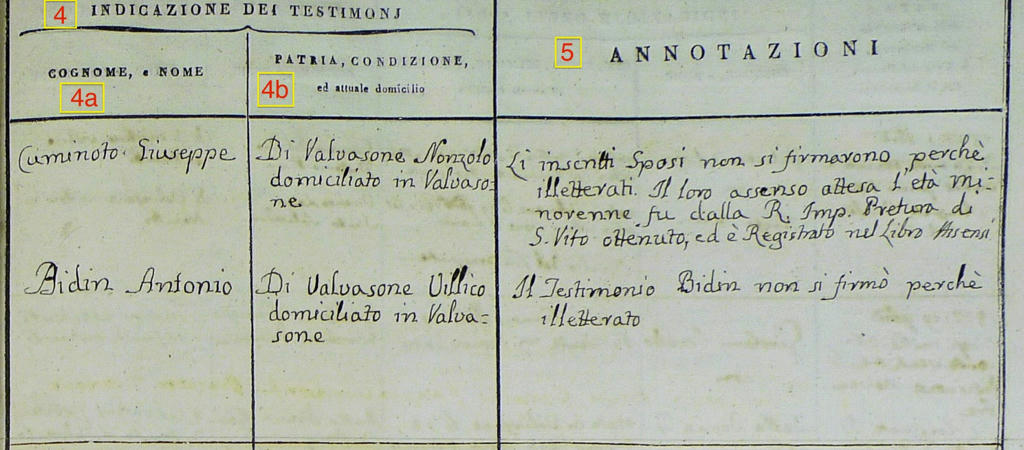 4 INDICAZIONE DEI TESTIMONJ
COGNOME, e NOME
4a
4b PATRIA, CONDIZIONE,
ed attuale domicilio
5 ANNOTAZIONI
Cuminoto Giuseppe
Di Valvasone Nonzolo
domiciliato in Valvaso=
ne
Li inscritti Sposi non si firmarono perchè
illetterati. Il loro assenso attesa l'età mi=
norenne fu dalla R. Imp. Pretura di
S. Vito ottenuto, ed è Registrato nel Libro Assensi
Bidin Antonio
Di Valvasone Villico
domiciliato in Valva=
sone
Il Testimonio Bidin non si firmò perchè
illetterato